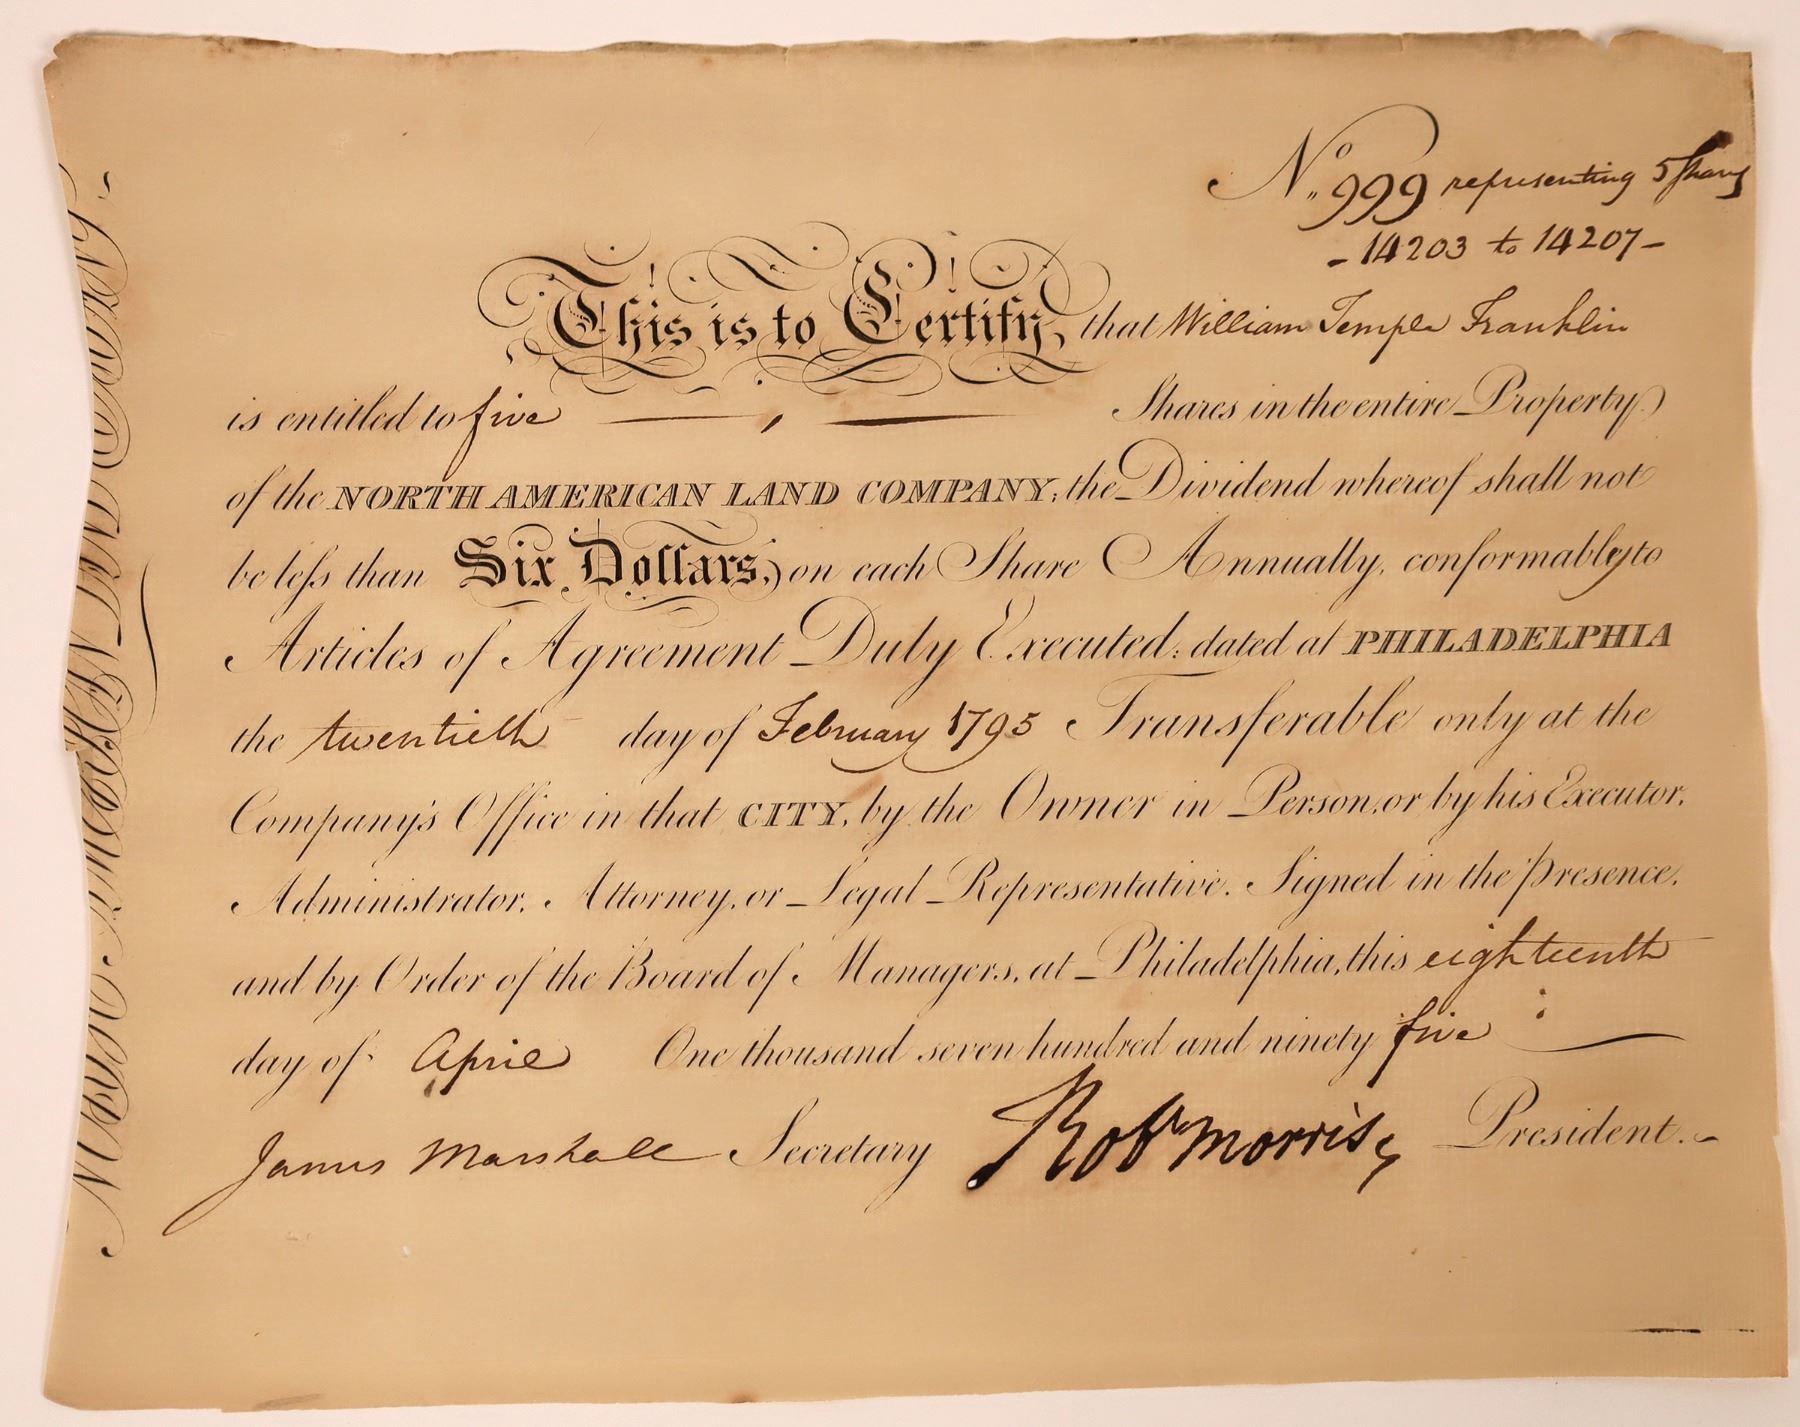 No. 999 representing 5 Shares
- 14203 to 14207 -
This is to Certify, that William Temple Franklin
is entitled to five Shares in the entire Property
of the NORTH AMERICAN LAND COMPANY; the Dividend whereof shall not
be less than Six Dollars, on each Share Annually, conformably to
Articles of Agreement Duly Executed: dated at PHILADELPHIA
the twentieth day of February 1795 Transferable only at the
Company's Office in that CITY, by the Owner in Person, or by his Executor,
Administrator, Attorney, or Legal Representative. Signed in the presence,
and by Order of the Board of Managers, at Philadelphia, this eighteenth
day of April One thousand seven hundred and ninety five
James Marshall Secretary Robt Morris President.